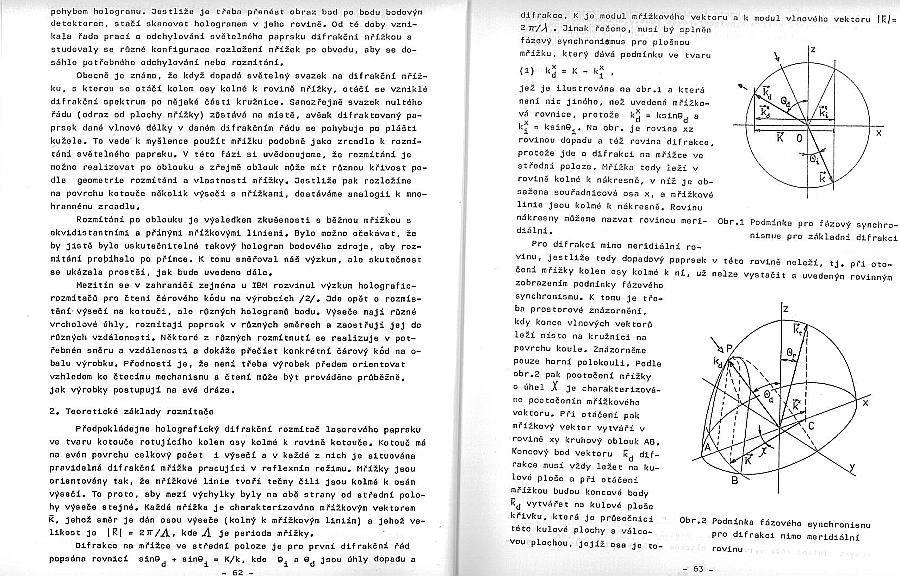 pohybem hologramu. Jestliže je třeba přenést obraz bod po bodu bodovým
detektorem, stačí skanovat hologramem v jeho rovině. Od té doby vzni-
kala řada prací o odchylování světelného paprsku difrakční mřížkou a
studovaly se různé konfigurace rozložení mřížek po obvodu, aby se do-
sáhlo potřebného odchylování nebo rozmítání.
Obecně je známo, že když dopadá světelný svazek na difrakční mříž-
ku, s kterou se otáčí kolem osy kolmé k rovině mřížky, otáčí se vzniklé
difrakční spektrum po nějaké části kružnice. Samozřejmě svazek nultého
řádu (odraz od plochy mřížky) zůstává na místě, avšak difraktovaný pa-
prsek dané vlnové délky v daném difrakčním řádu se pohybuje po plášti
kužele. To vede k myšlence použít mřížku podobně jako zrcadlo k rozmí-
tání světelného paprsku. V této fázi si uvědomujeme, že rozmítání je
možno realizovat po oblouku a zřejmě oblouk může mít různou křivost po-
dle geometrie rozmítání a vlastností mřížky. Jestliže pak rozložíme
na povrchu kotouče několik výsečí s mřížkami, dostáváme analogii k mno-
hrannému zrcadlu.
Rozmítání po oblouku je výsledkem zkušenosti s běžnou mřížkou s
ekvidistantními a přímými mřížkovými liniemi. Bylo možno očekávat, že
by jistě bylo uskutečnitelné takový hologram bodového zdroje, aby roz-
mítání probíhalo po přímce. K tomu směřoval náš výzkum, ale skutečnost
se ukázala prostší, jak bude uvedeno dále.
Mezitím se v zahraničí zejména u IBM rozvinul výzkum holografic-
rozmítačů pro čtení čárového kódu na výrobcích /2/. Jde opět o rozmís-
tění výsečí na kotouči, ale různých hologramů bodu. Výseče mají různé
vrcholové úhly, rozmítají paprsek v různých směrech a zaostřují jej do
různých vzdáleností. Některé z různých rozmítnutí se realizuje v pot-
řebném směru a vzdálenosti a dokáže přečíst konkrétní čárový kód na o-
balu výrobku. Předností je, že není třeba výrobek předem orientovat
vzhledem ke čtecímu mechanismu a čtení může být prováděno průběžně,
jak výrobky postupují na své dráze.
2. Teoretické základy rozmítače
Předpokládejme holografický difrakční rozmítač laserového paprsku
ve tvaru kotouče rotujícího kolem osy kolmé k rovině kotouče. Kotouč má
na svém povrchu celkový počet i výsečí a v každé z nich je situována
pravidelná difrakční mřížka pracující v reflexním režimu. Mřížky jsou
orientovány tak, že mřížkové linie tvoří tečny čili jsou kolmé k osám
výsečí. To proto, aby mezi výchylky byly na obě strany od střední polo-
hy výseče stejné. Každá mřížka je charakterizována mřížkovým vektorem
K̄, jehož směr je dán osou výseče (kolmý k mřížkovým liniím) a jehož ve-
likost je |K̄| = 2π/Λ, kde Λ je perioda mřížky.
Difrakce na mřížce ve střední poloze je pro první difrakční řád
popsána rovnicí sinΘd + sinΘi = K/k, kde Θi a Θd jsou úhly dopadu a
- 62 -
difrakce, K je modul mřížkového vektoru a k modul vlnového vektoru |k̄|=
2π/λ. Jinak řečeno, musí být splněn
fázový synchronismus pro plošnou
mřížku, který dává podmínku ve tvaru
(1) kˣd = K - kˣi ,
jež je ilustrována na obr.1 a která
není nic jiného, než uvedená mřížko-
vá rovnice, protože kˣd = ksinΘd a
kˣi = ksinΘi. Na obr. je rovina xz
rovinou dopadu a též rovina difrakce,
protože jde o difrakci na mřížce ve
střední poloze. Mřížka tedy leží v
rovině kolmé k nákresně, v níž je ob-
sažena souřadnicová osa x, a mřížkové
linie jsou kolmé k nákresně. Rovinu
nákresny můžeme nazvat rovinou meri-
diální.
z
k̄d
Θd
k̄i
x
K̄
O
Θi
k̄
Obr.1 Podmínka pro fázový synchro-
nismus pro základní difrakci
Pro difrakci mimo meridiální ro-
vinu, jestliže tedy dopadový paprsek v této rovině neleží, tj. při oto-
čení mřížky kolem osy kolmé k ní, už nelze vystačit s uvedeným rovinným
zobrazením podmínky fázového
synchronismu. K tomu je tře-
ba prostorové znázornění,
kdy konce vlnových vektorů
leží místo na kružnici na
povrchu koule. Znázorněme
pouze horní polokouli. Podle
obr.2 pak pootočení mřížky
o úhel χ je charakterizová-
no pootočením mřížkového
vektoru. Při otáčení pak
mřížkový vektor vytváří v
rovině xy kruhový oblouk AB.
Koncový bod vektoru k̄d dif-
rakce musí vždy ležet na ku-
lové ploše a při otáčení
mřížkou budou koncové body
k̄d vytvářet na kulové ploše
křivku, která je průsečnicí
této kulové plochy s válco-
vou plochou, jejíž osa je to-
z
k̄r
P
k̄d
Θr
Θd
x
K̄
C
A
K̄
χ
y
B
Obr.2 Podmínka fázového synchronismu
pro difrakci mimo meridiální
rovinu
- 63 -